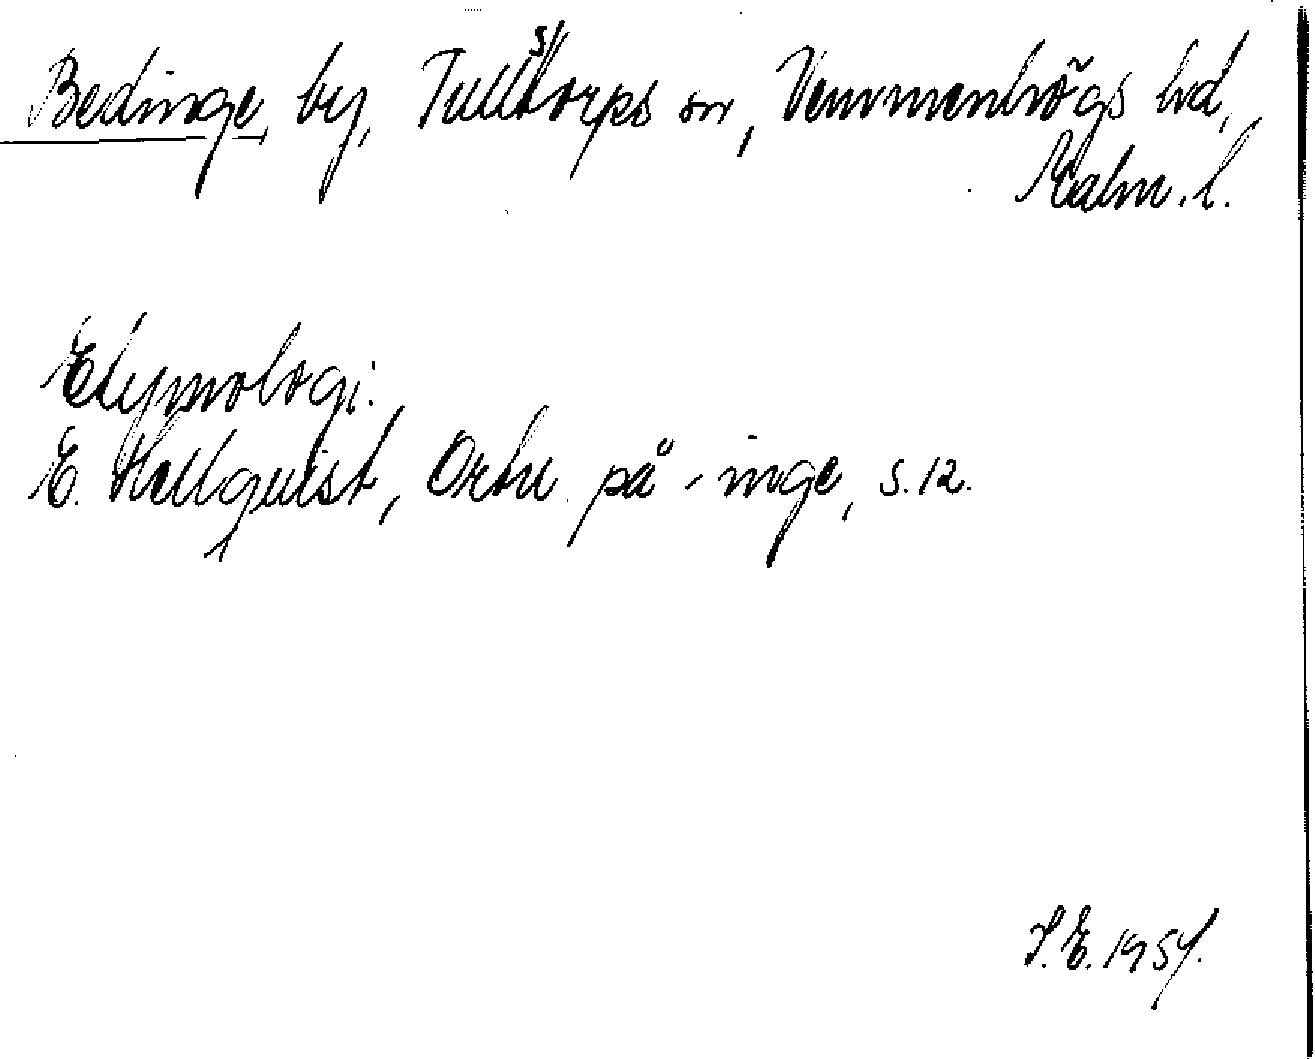 Bedinge, by, Tullstorps sn, Vemmenhögs hd,
Malm. l.
Etymologi.
E. Hellquist, Ortn. på -inge, s. 12.
S.E. 1954.